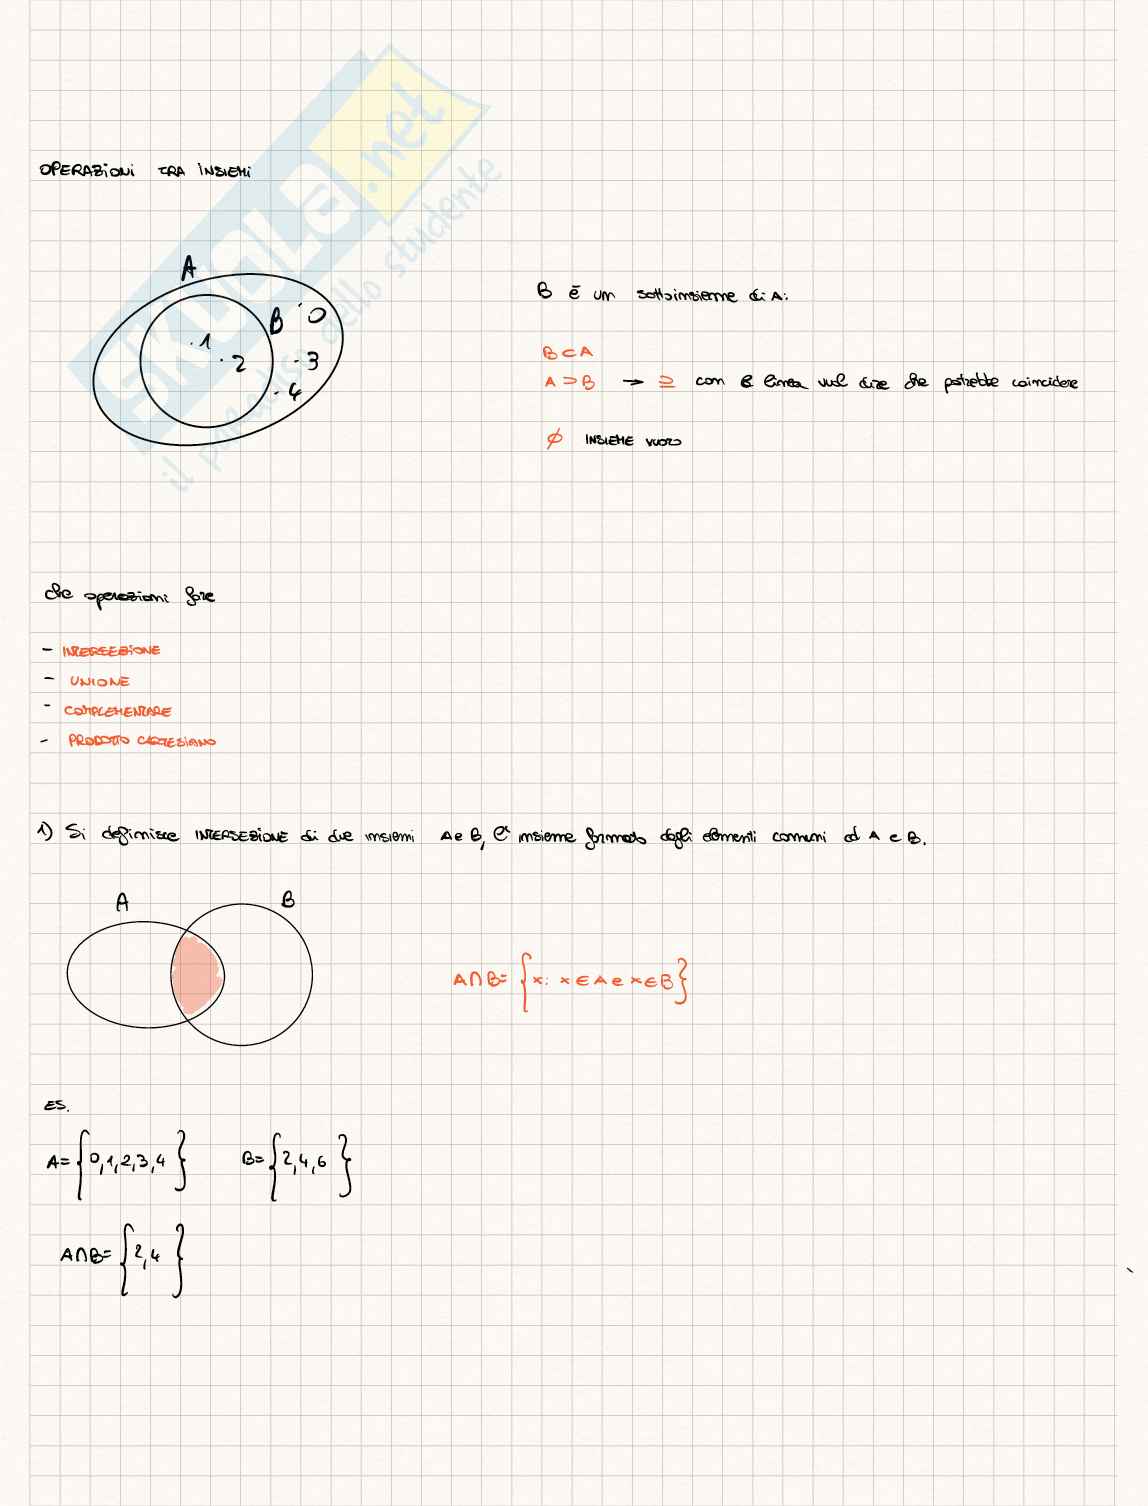 SKUOLA.net
il paradiso dello studente
OPERAZIONI TRA INSIEMI
A
B
·1
·2
·0
·3
·4
B è un sottoinsieme di A:
B⊂A
A⊃B → ⊇ con la linea vuol dire che potrebbe coincidere
∅ INSIEME VUOTO
che operazioni fare
- INTERSEZIONE
- UNIONE
- COMPLEMENTARE
- PRODOTTO CARTESIANO
1) Si definisce INTERSEZIONE di due insiemi A e B, l'insieme formato dagli elementi comuni ad A e B.
A B
A∩B= {x: x∈A e x∈B}
ES.
A= {0,1,2,3,4} B= {2,4,6}
A∩B= {2,4}